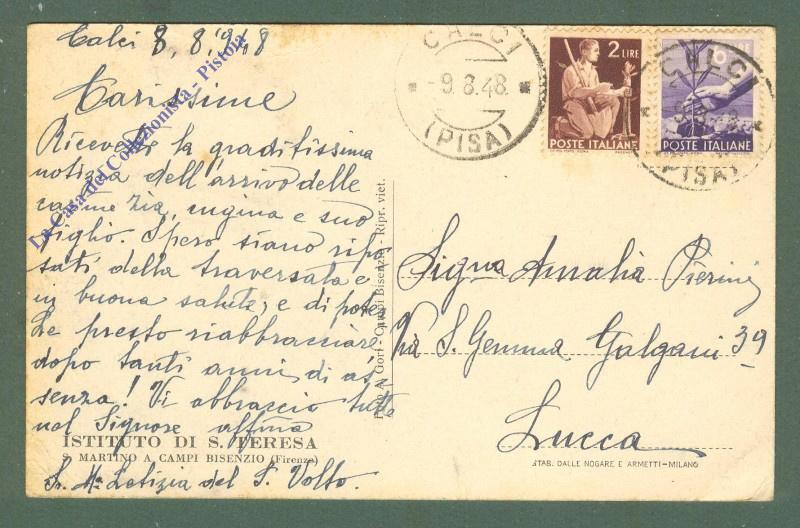 Calci 8, 8, 948
CALCI
-9. 8. 48.
(PISA)
2 LIRE
POSTE ITALIANE
POSTE ITALIANE
CALCI
(PISA)
La Casa del Collezionista - Pistoia
Carissime
Ricevetti la graditissima
notizia dell'arrivo delle
carime zia, cugina e suo
figlio. Spero siano ripo
sati della traversata e
in buona salute, e di poter
le presto riabbracciare
dopo tanti anni di as
senza! Vi abbraccio tutte
nel Signore affma
Sr. Ma Letizia del S. Volto
ISTITUTO DI S. TERESA
S. MARTINO A CAMPI BISENZIO (Firenze)
A. Gori - Campi Bisenzio - Ripr. viet.
Signa Amalia Pierini
Via S. Gemma Galgani 39
Lucca
STAB. DALLE NOGARE E ARMETTI - MILANO